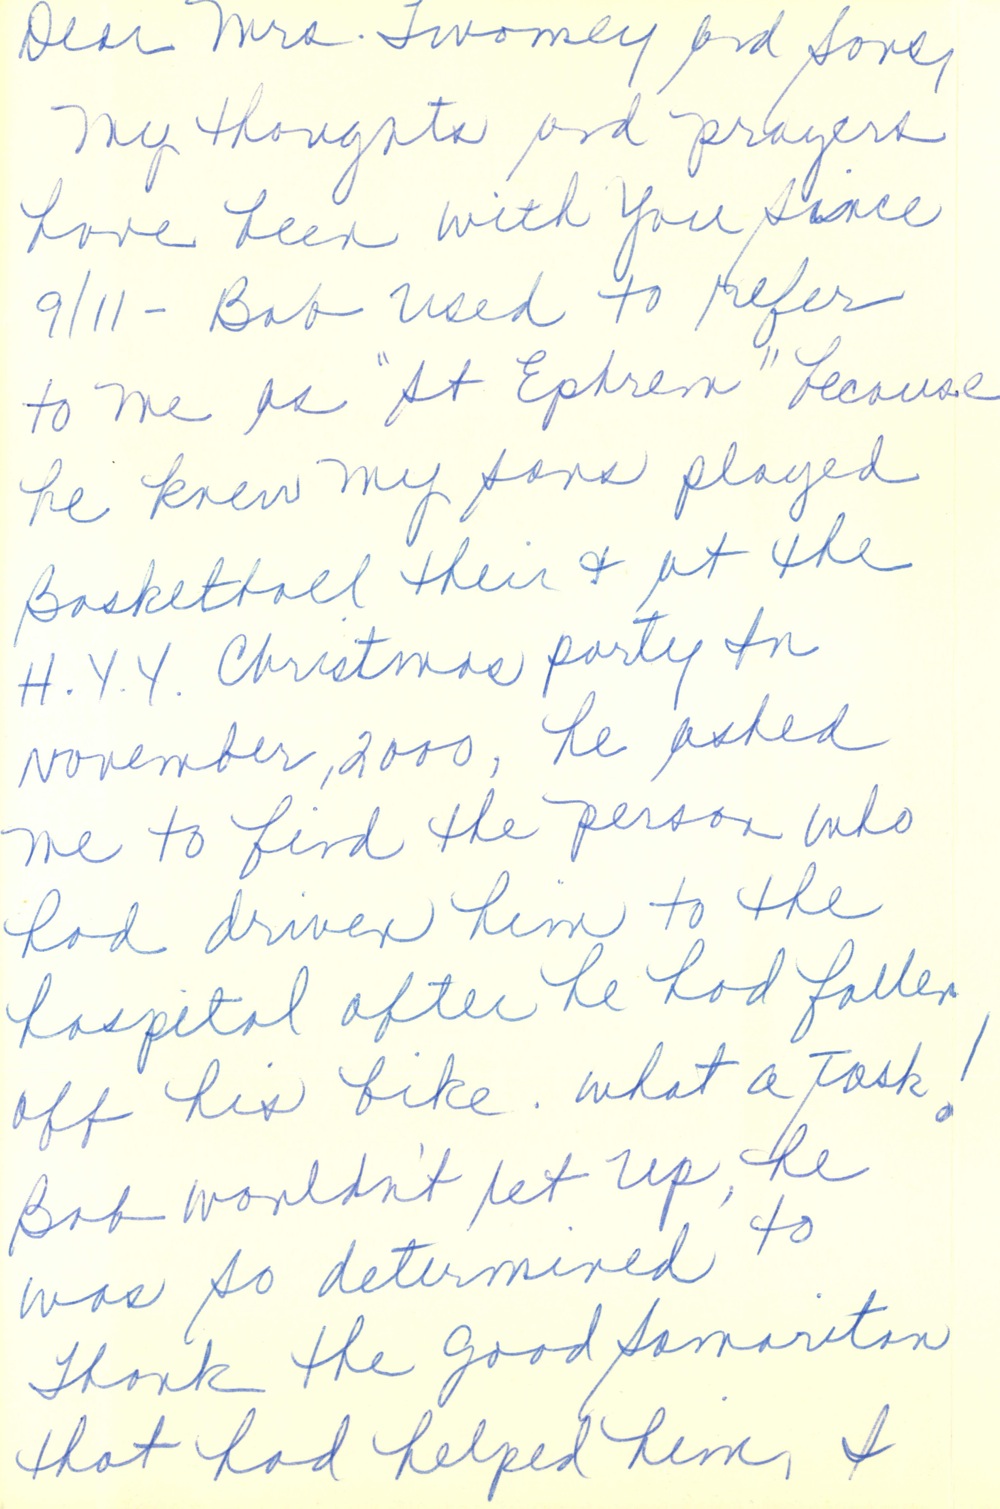 Dear Mrs. Twomey and Sons,
My thoughts and prayers
have been with You since
9/11 - Bob used to refer
to me as "St Ephrem" because
he knew my sons played
Basketball their & at the
H.Y.Y. Christmas party In
November, 2000, he asked
me to find the person who
had driven him to the
hospital after he had fallen
off his bike. what a Task!
Bob wouldn't let up, he
was so determined to
Thank the Good Samaritan
that had helped him, I